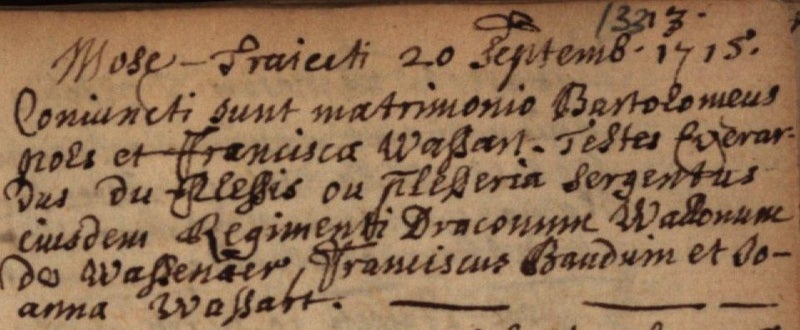 1323.
Mose-Traiecti 20 Septemb. 1715.
Coniuncti sunt matrimonio Bartolomeus
pols et Francisca Wassart. Testes Everar-
dus du plessis ou plesseria sergentus
eiusdem Regimenti Draconum Wallonum
de Wassenaer, Franciscus Bauduin et Jo-
anna Wassart.